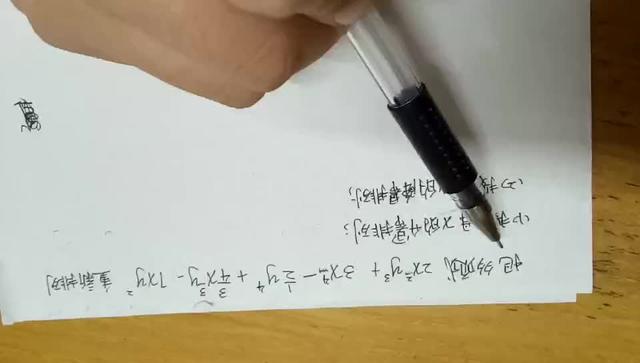 把多项式 2x²y³ + 3x⁴ - ½y⁴ + ¾x³y - 7xy² 重新排列
(1) 按 x的升幂排列:
(2) 按 的降幂排列: